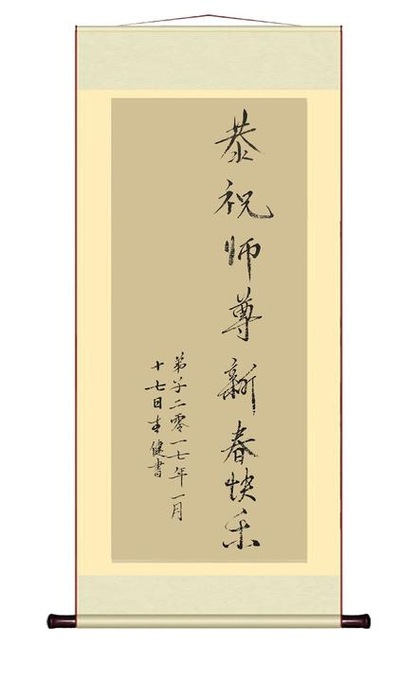 恭祝师尊新春快乐
弟子二零一七年一月
十七日李健書